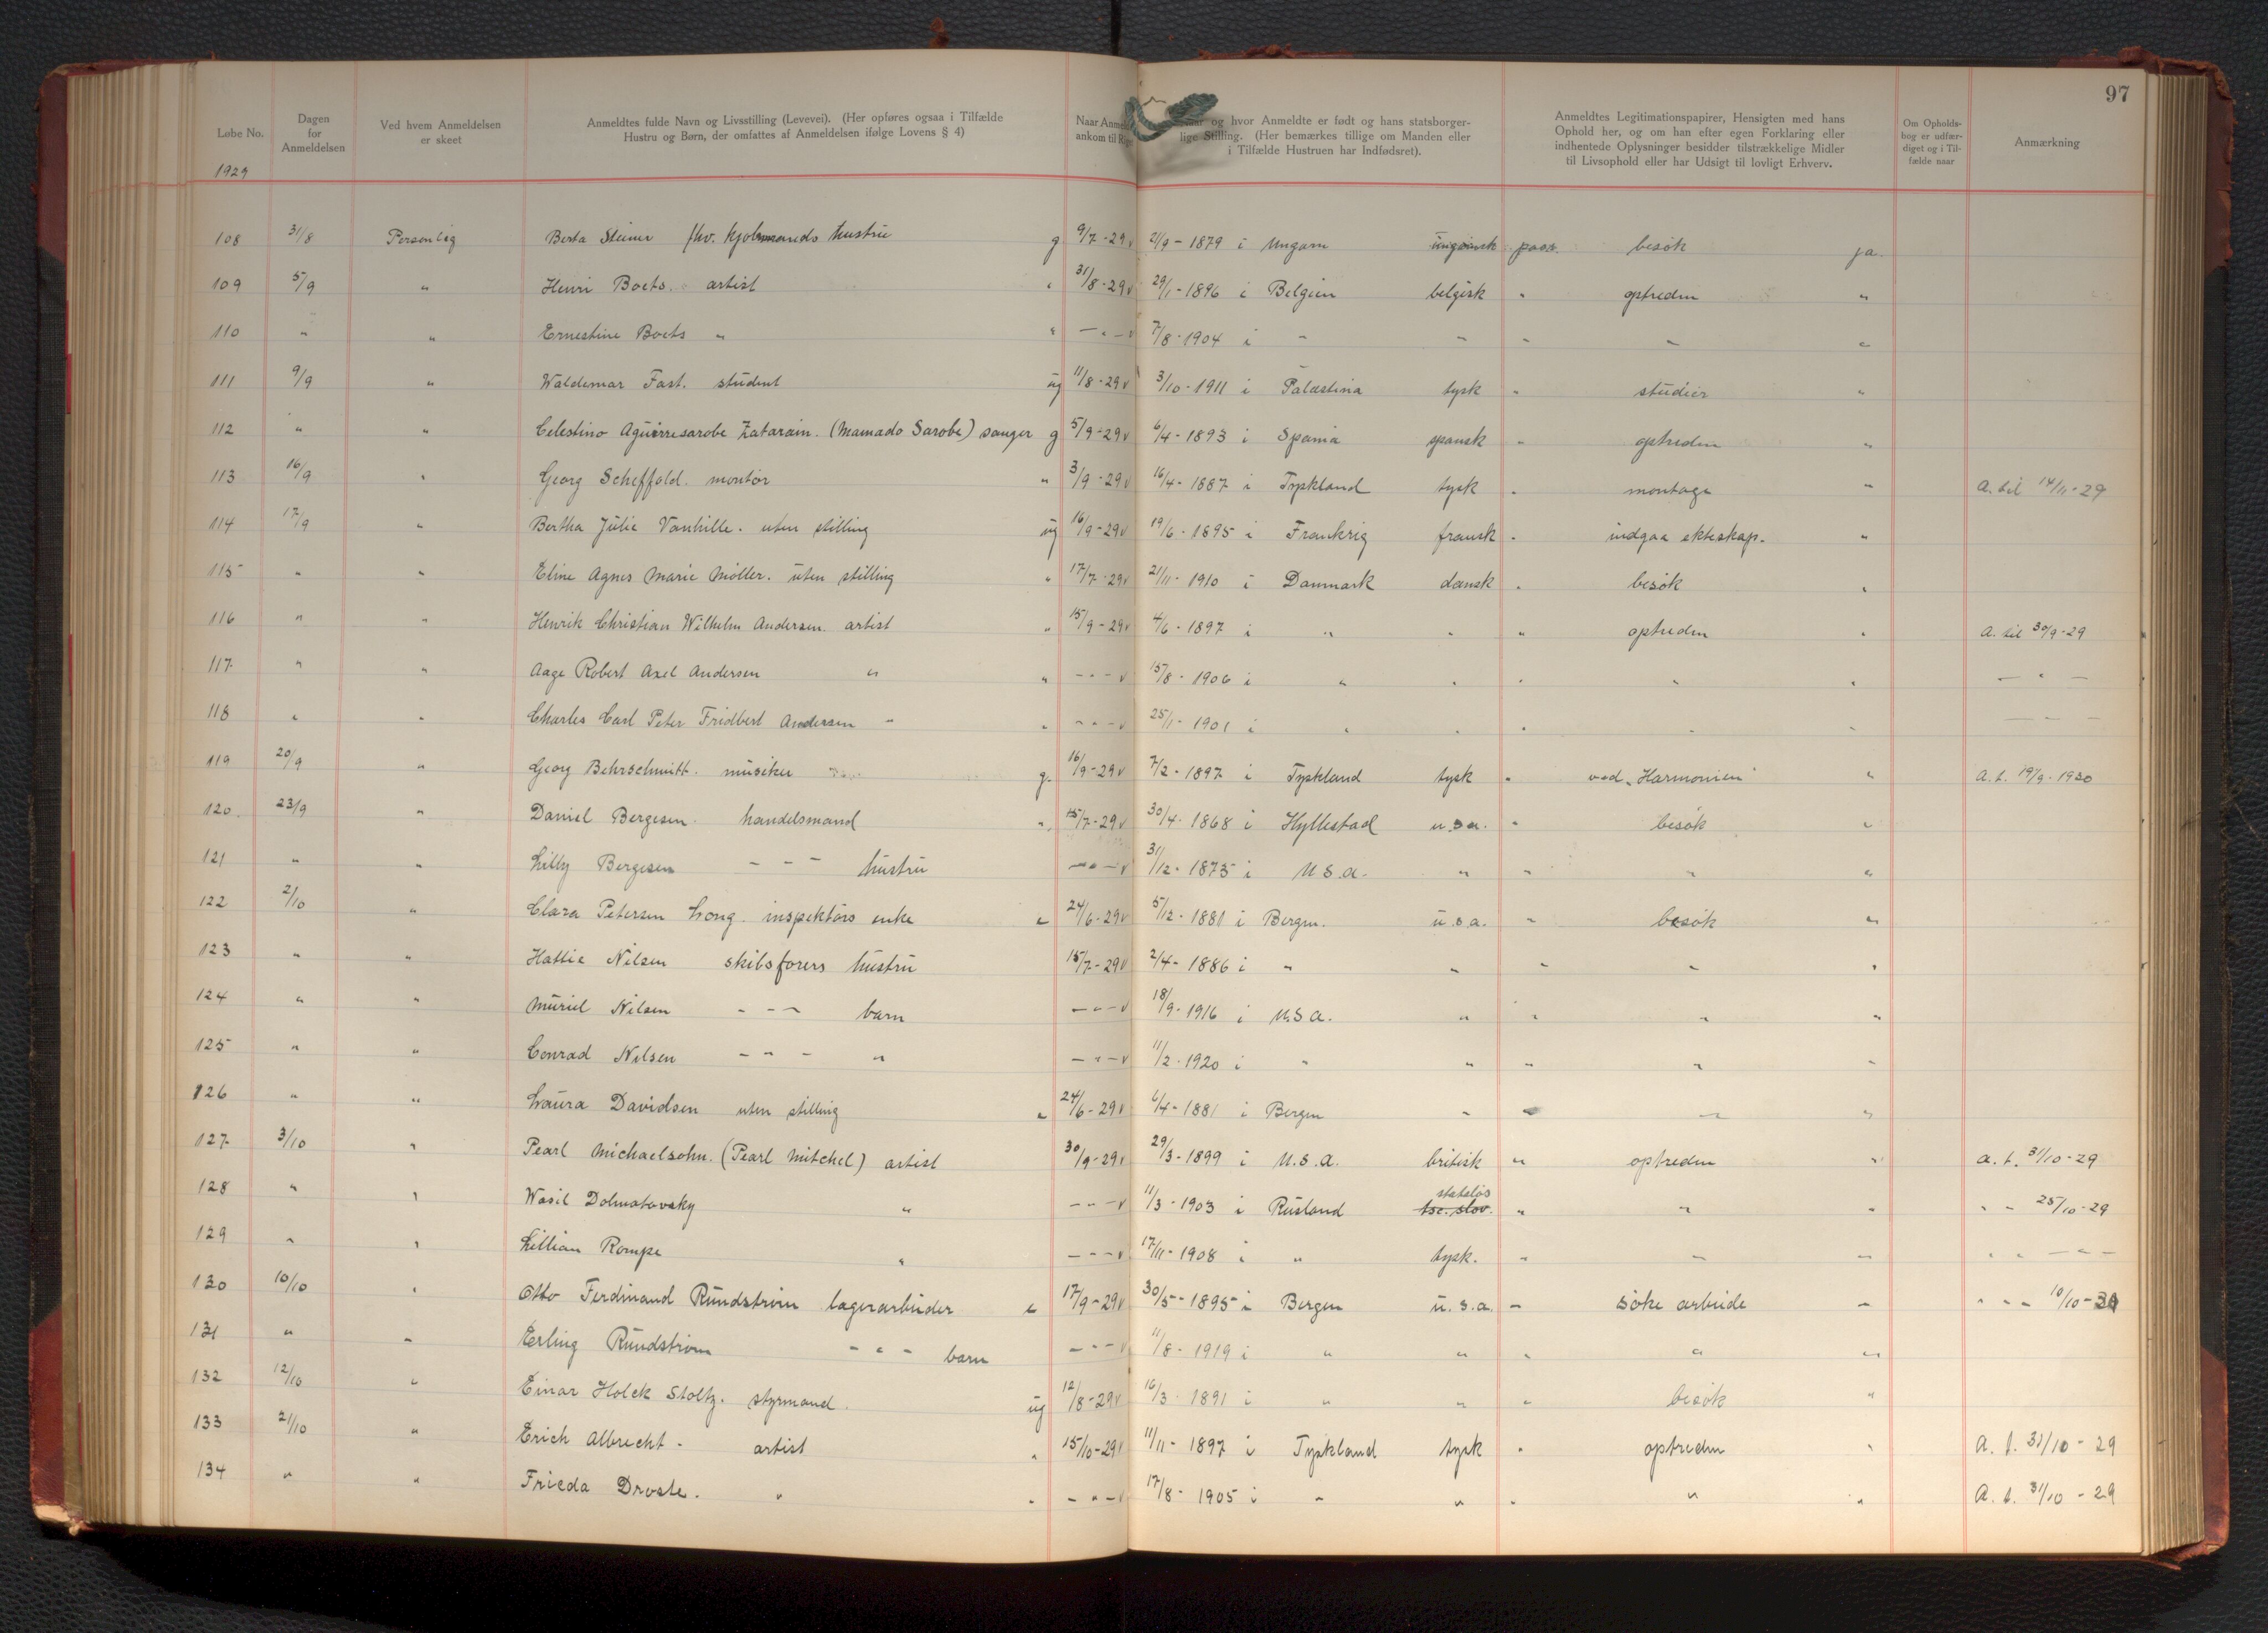 97
Løbe No.
Dagen
for
Anmeldelsen
Ved hvem Anmeldelsen
er skeet
Anmeldtes fulde Navn og Livsstilling (Levevei). (Her opføres ogsaa i Tilfælde
Hustru og Børn, der omfattes af Anmeldelsen ifølge Lovens § 4)
Naar Anmeld
ankom til Rig
og hvor Anmeldte er født og hans statsborger-
lige Stilling. (Her bemærkes tillige om Manden eller
i Tilfælde Hustruen har Indfødsret).
Anmeldtes Legitimationspapirer, Hensigten med hans
Ophold her, og om han efter egen Forklaring eller
indhentede Oplysninger besidder tilstrækkelige Midler
til Livsophold eller har Udsigt til lovligt Erhverv.
Om Opholds-
bog er udfær-
diget og i Til-
fælde naar
Anmærkning
1929
108 31/8 Personlig Berta Steiner fhv. kjobmands hustru g 9/7-29 v 21/9-1879 i Ungarn ungarsk pass. besök ja.
109 5/9 " Henri Boets. artist " 31/8-29 v 29/1-1896 i Belgien belgisk " optreden "
110 " " Ernestine Boets " " - " - v 7/8-1904 i " " " " "
111 9/9 " Waldemar Fast. student ug 11/8-29 v 3/10-1911 i Palæstina tysk " studier "
112 " " Celestino Aguirresarobe Zatarain. (Mamado Sarobe) sanger g 5/9-29 v 6/4-1893 i Spania spansk " optreden "
113 16/9 " Georg Scheffold. montör " 3/9-29 v 16/4-1887 i Tyskland tysk " montage " A. til 14/11-29
114 17/9 " Bertha Julie Vanhille. uten stilling ug 16/9-29 v 19/6-1895 i Frankrig fransk " indgaa ekteskap. "
115 " " Eline Agnes Marie Möller. uten stilling " 17/7-29 v 21/11-1910 i Danmark dansk " besök "
116 " " Henrik Christian Wilhelm Andersen artist " 15/9-29 v 4/6-1897 i " " " optreden " A. til 30/9-29
117 " " Aage Robert Axel Andersen " " - " - v 15/8-1906 i " " " " " - " -
118 " " Charles Carl Peter Fridbert Andersen " " - " - v 25/1-1901 i " " " " " - " -
119 20/9 " Georg Behrschmitt. musiker g. 16/9-29 v 7/2-1897 i Tyskland tysk " ved "Harmonien" " A. t. 19/9-1930
120 23/9 " Daniel Bergesen. handelsmand " 15/7-29 v 30/4-1868 i Hyllestad u.s.a. " besök "
121 " " Lilly Bergesen - " - hustru - " - v 31/12-1875 i U.S.A. " " " "
122 2/10 " Clara Petersen Long. inspektörs enke e 24/6-29 v 5/12-1881 i Bergen. u.s.a. " besök "
123 " " Hattie Nilsen skibsforers hustru 15/7-29 v 2/4-1886 i " " " " "
124 " " Muriel Nilsen - " - barn - " - v 18/9-1916 i U.S.A. " " " "
125 " " Conrad Nilsen - " - " - " - v 11/2-1920 i " " " " "
126 " " Laura Davidsen uten stilling e 24/6-29 v 6/4-1881 i Bergen " " " "
127 3/10 " Pearl Michaelsohn. (Pearl Mitchel) artist 30/9-29 v 29/3-1899 i U.S.A. britisk " optreden " a. t. 31/10-29
128 " " Wasil Dolmatovsky " - " - v 11/3-1903 i Rusland statslös tsc. slov. " " " " " 25/10-29
129 " " Lillian Rompe " - " - v 17/11-1908 i " tysk. " " " " " - " -
130 10/10 " Otto Ferdinand Rundström lagerarbeider e 17/9-29 v 30/5-1895 i Bergen u.s.a. " söke arbeide " " " 10/10-30
131 " " Erling Rundström - " - barn - " - v 11/8-1919 i " " " " "
132 12/10 " Einar Holck Stoltz. styrmand. ug 12/8-29 v 16/3-1891 i " " " besök "
133 21/10 " Erich Albrecht. artist " 15/10-29 v 11/11-1897 i Tyskland tysk " optreden " A. t. 31/10-29
134 " " Frieda Droste. " " - " - v 17/8-1905 i " " " " " A. t. 31/10-29